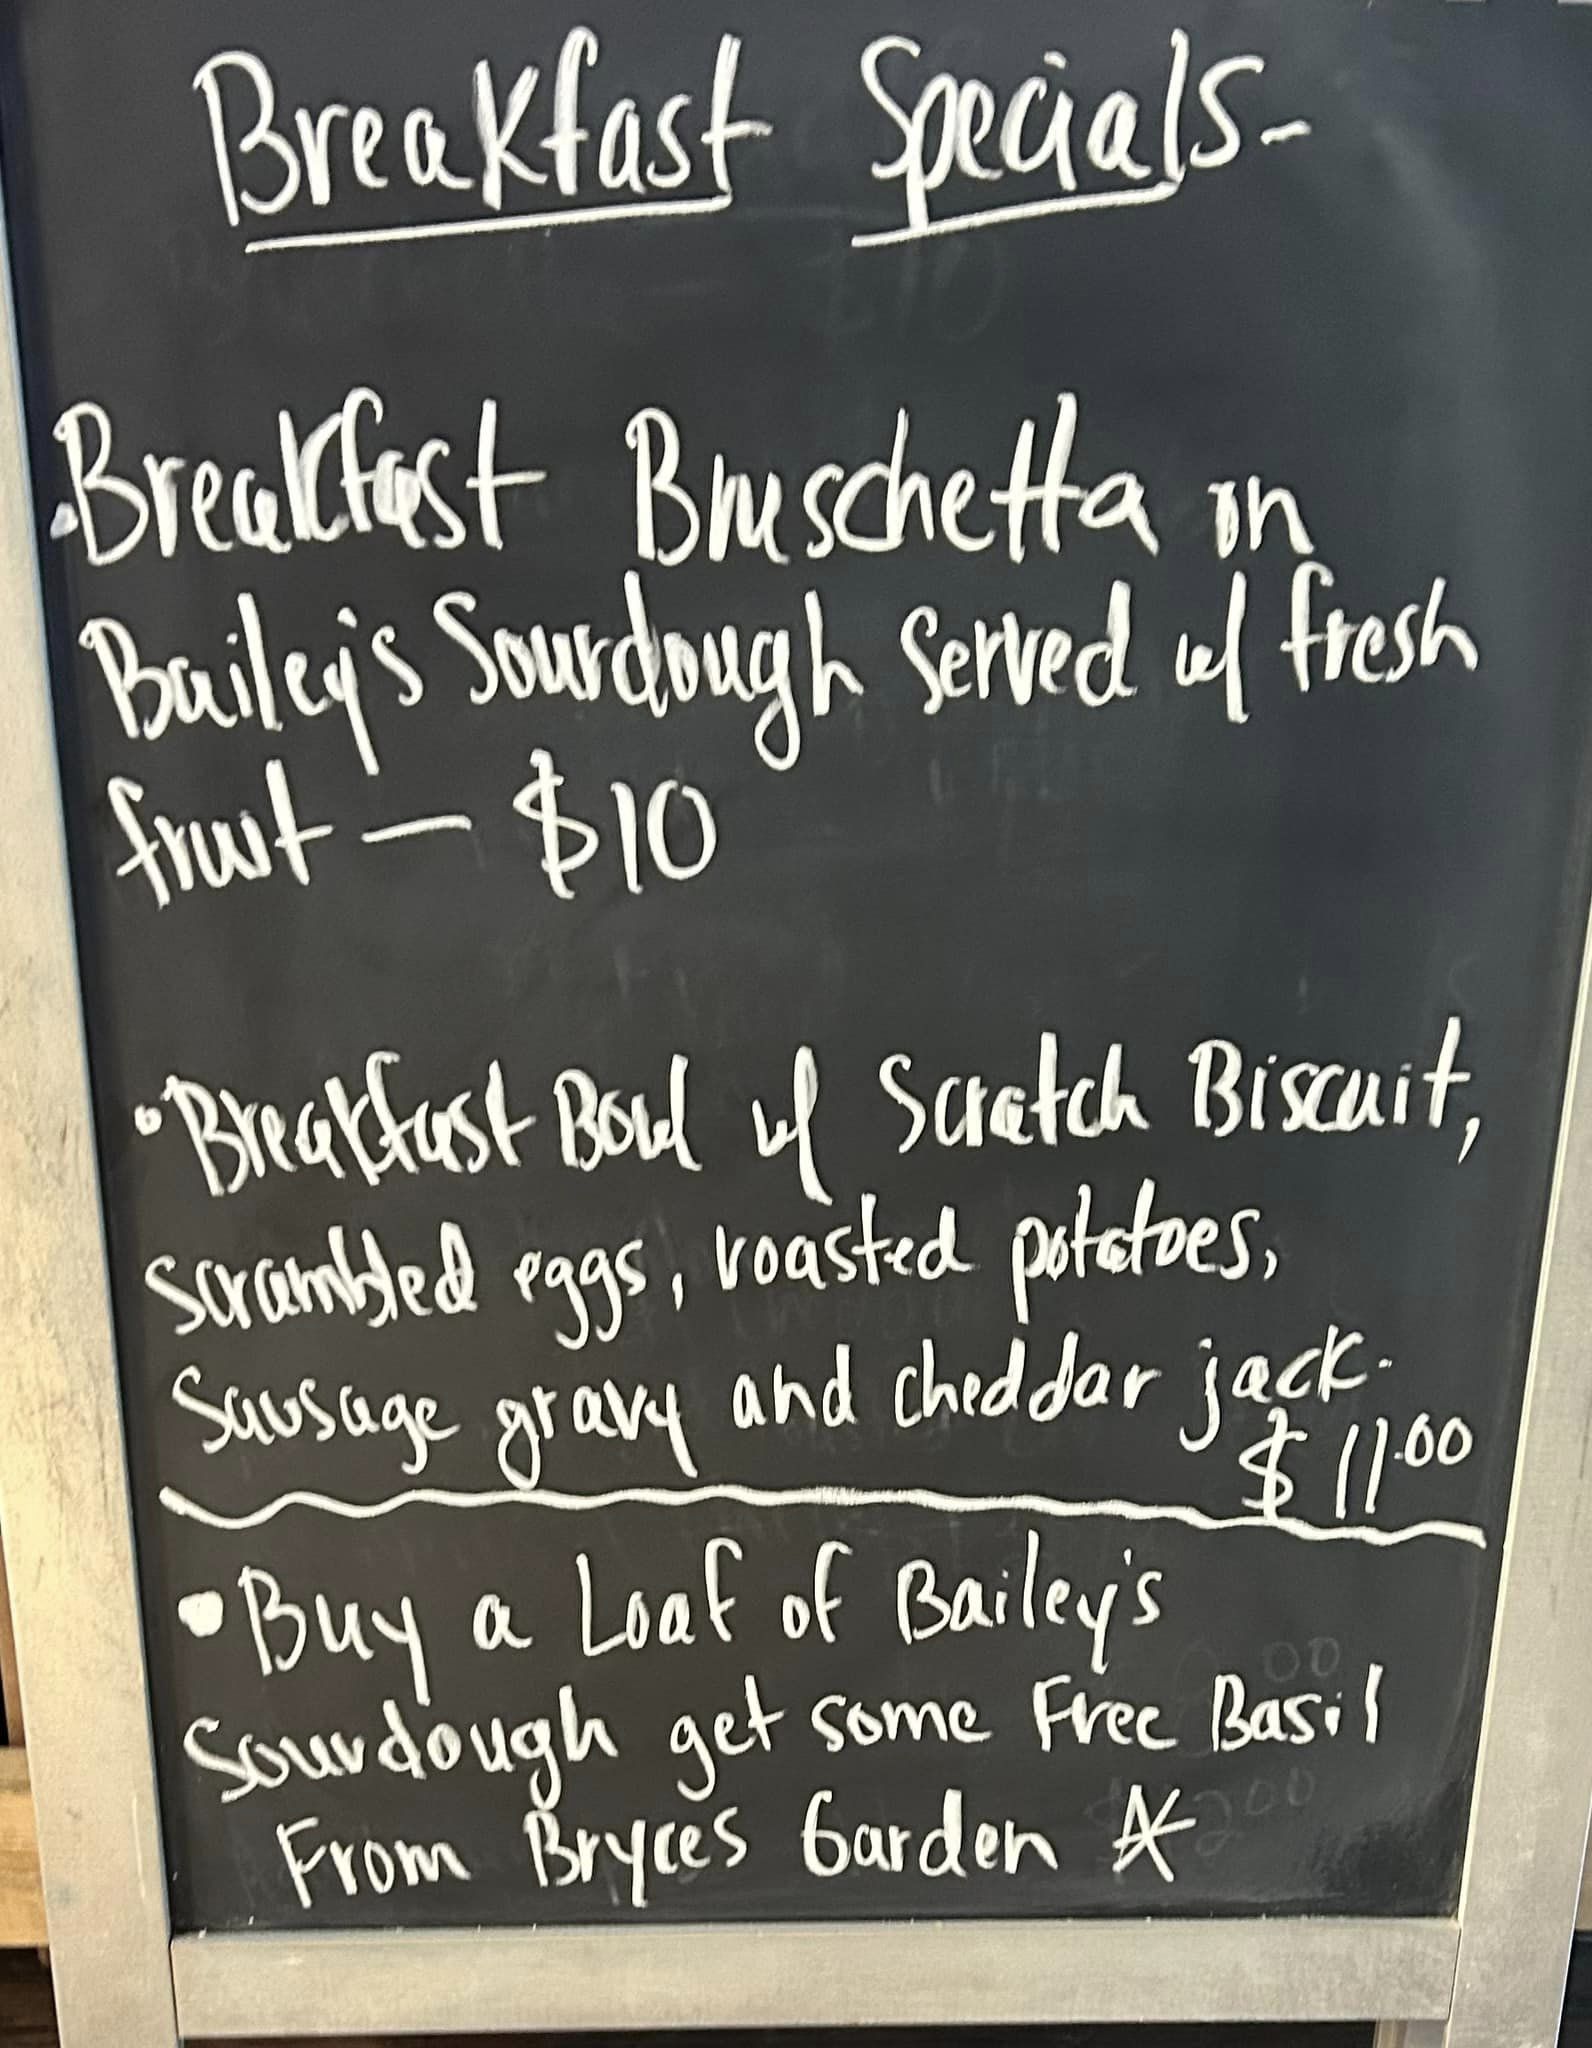 Breakfast Specials-
• Breakfast Bruschetta on
Bailey's Sourdough Served w/ fresh
fruit — $10
• Breakfast Bowl w/ Scratch Biscuit,
scrambled eggs, roasted potatoes,
Sausage gravy and cheddar jack.
$11.00
• Buy a Loaf of Bailey's
Sourdough get some Free Basil
From Bryces Garden